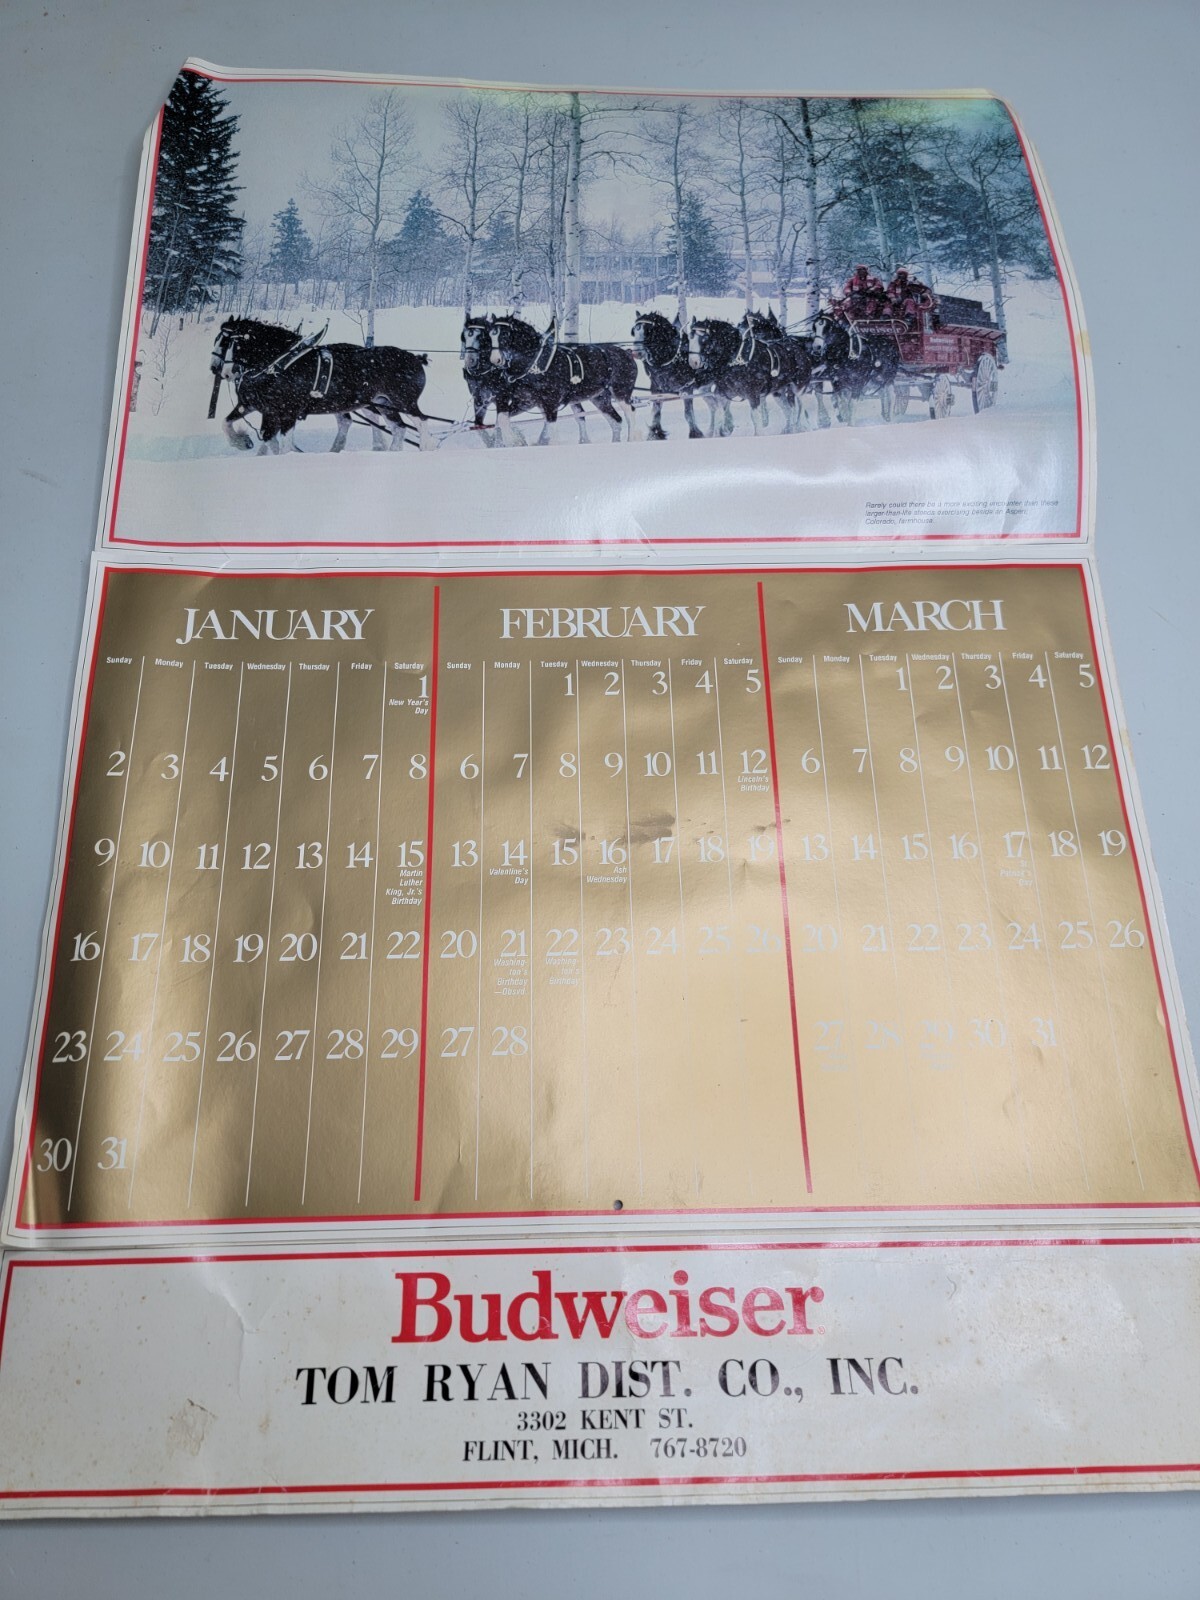 weiser
Budweiser
Rarely could there be a more exciting encounter than these
larger-than-life steeds exercising beside an Aspen,
Colorado, farmhouse.
JANUARY
Sunday Monday Tuesday Wednesday Thursday Friday Saturday
1
New Year's
Day
2 3 4 5 6 7 8
9 10 11 12 13 14 15
Martin
Luther
King, Jr.'s
Birthday
16 17 18 19 20 21 22
23 24 25 26 27 28 29
30 31
FEBRUARY
Sunday Monday Tuesday Wednesday Thursday Friday Saturday
1 2 3 4 5
6 7 8 9 10 11 12
Lincoln's
Birthday
13 14 15 16 17 18 19
Valentine's
Day
Ash
Wednesday
20 21 22 23 24 25 26
Washing-
ton's
Birthday
—Obsvd.
Washing-
ton's
Birthday
27 28
MARCH
Sunday Monday Tuesday Wednesday Thursday Friday Saturday
1 2 3 4 5
6 7 8 9 10 11 12
13 14 15 16 17 18 19
St.
Patrick's
Day
20 21 22 23 24 25 26
27 28 29 30 31
Budweiser®
TOM RYAN DIST. CO., INC.
3302 KENT ST.
FLINT, MICH. 767-8720